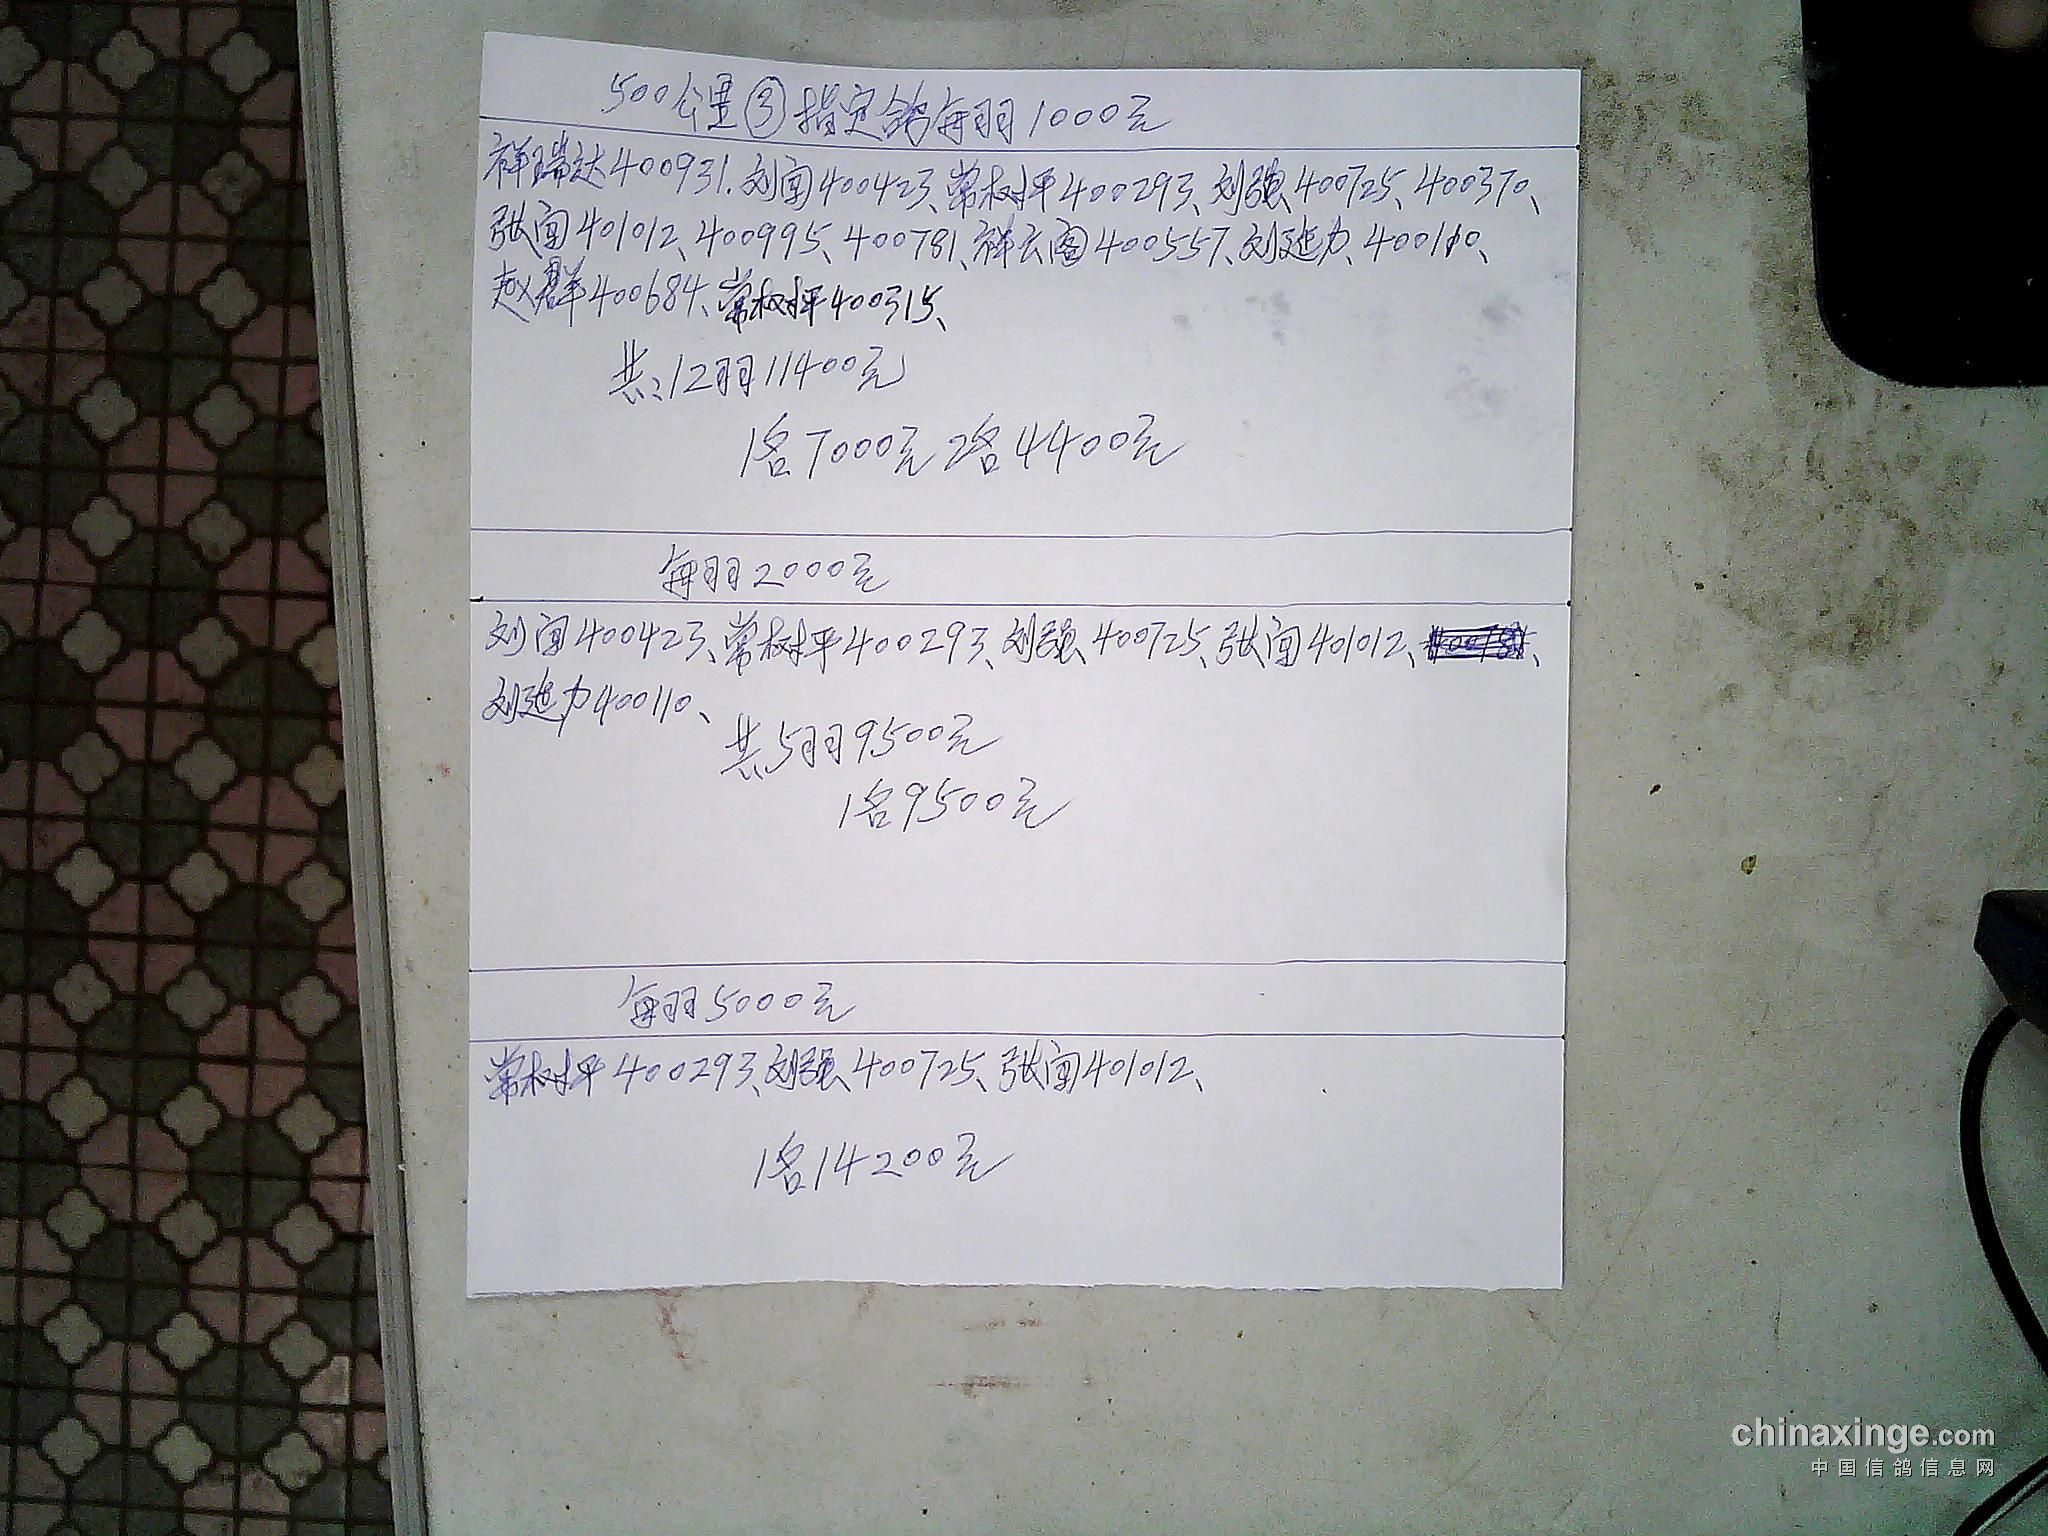 500公里③指定鸽每羽1000元
祥瑞达400931、刘闯400423、常树坪400293、刘强400725、400370、
张闯401012、400995、400781、祥云阁400557、刘延力、400110、
赵群400684、常树坪400315、
共:12羽11400元
1名7000元2名4400元
每羽2000元
刘闯400423、常树坪400293、刘强400725、张闯401012、
刘延力400110、
共:5羽9500元
1名9500元
每羽5000元
常树坪400293、刘强400725、张闯401012、
1名14200元
chinaxinge.com
中国信鸽信息网